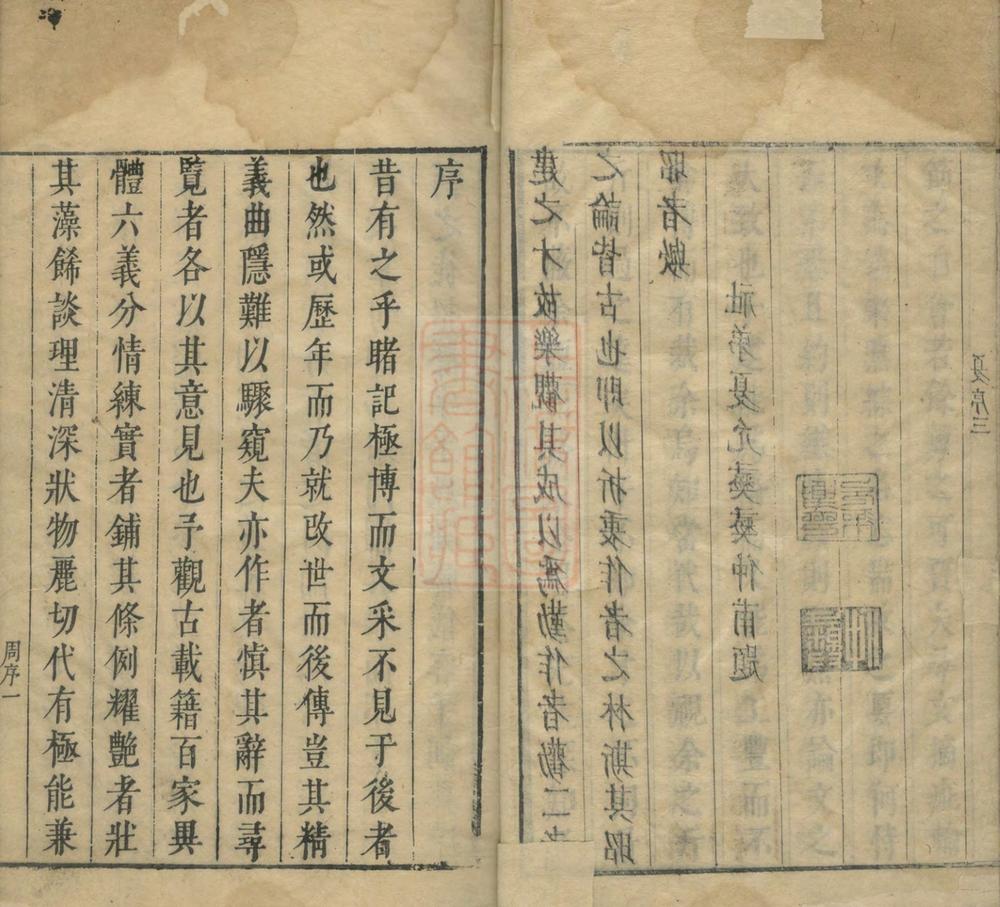 建之才故樂觀其成以爲勤作者勸二
之論皆古也即以折衷作者之林斯其昭
昭者歟
社弟夏允彝彝仲甫題
夏序三
序
昔有之乎睹記極博而文采不見于後者
也然或歷年而乃就改世而後傳豈其精
義曲隱難以驟窺夫亦作者慎其辭而尋
覽者各以其意見也予觀古載籍百家異
體六義分情練實者鋪其條例耀艷者壯
其藻餙談理清深狀物麗切代有極能兼
周序一